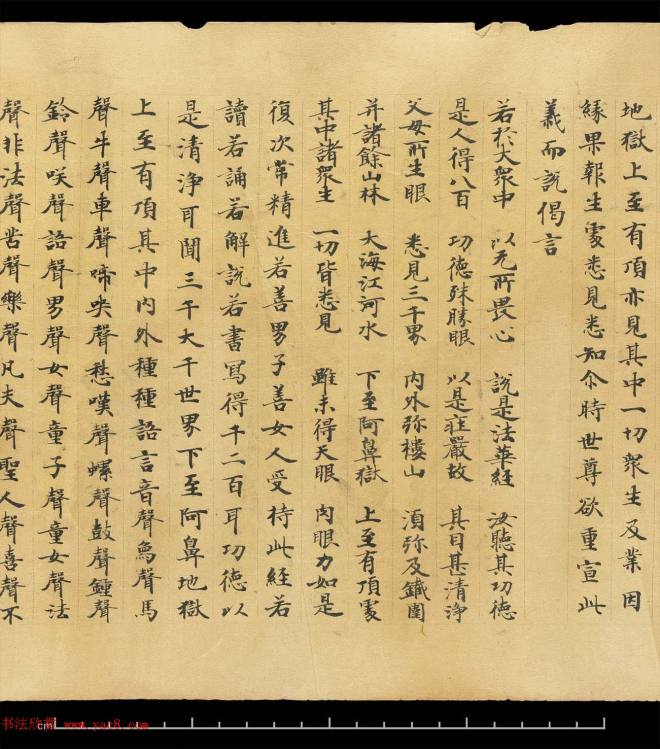 地獄上至有頂亦見其中一切衆生及業因
緣果報生處悉見悉知尒時世尊欲重宣此
義而說偈言
若於大衆中 以无所畏心 說是法華經 汝聽其功德
是人得八百 功德殊勝眼 以是莊嚴故 其目甚清淨
父母所生眼 悉見三千界 內外弥樓山 須弥及鐵圍
并諸餘山林 大海江河水 下至阿鼻獄 上至有頂處
其中諸衆生 一切皆悉見 雖未得天眼 肉眼力如是
復次常精進若善男子善女人受持此經若
讀若誦若解說若書寫得千二百耳功德以
是清淨耳聞三千大千世界下至阿鼻地獄
上至有頂其中內外種種語言音聲鳥聲馬
聲牛聲車聲啼哭聲愁嘆聲螺聲鼓聲鍾聲
鈴聲咲聲語聲男聲女聲童子聲童女聲法
聲非法聲苦聲樂聲凡夫聲聖人聲喜聲不
cm
书法欣赏 www.yac8.com